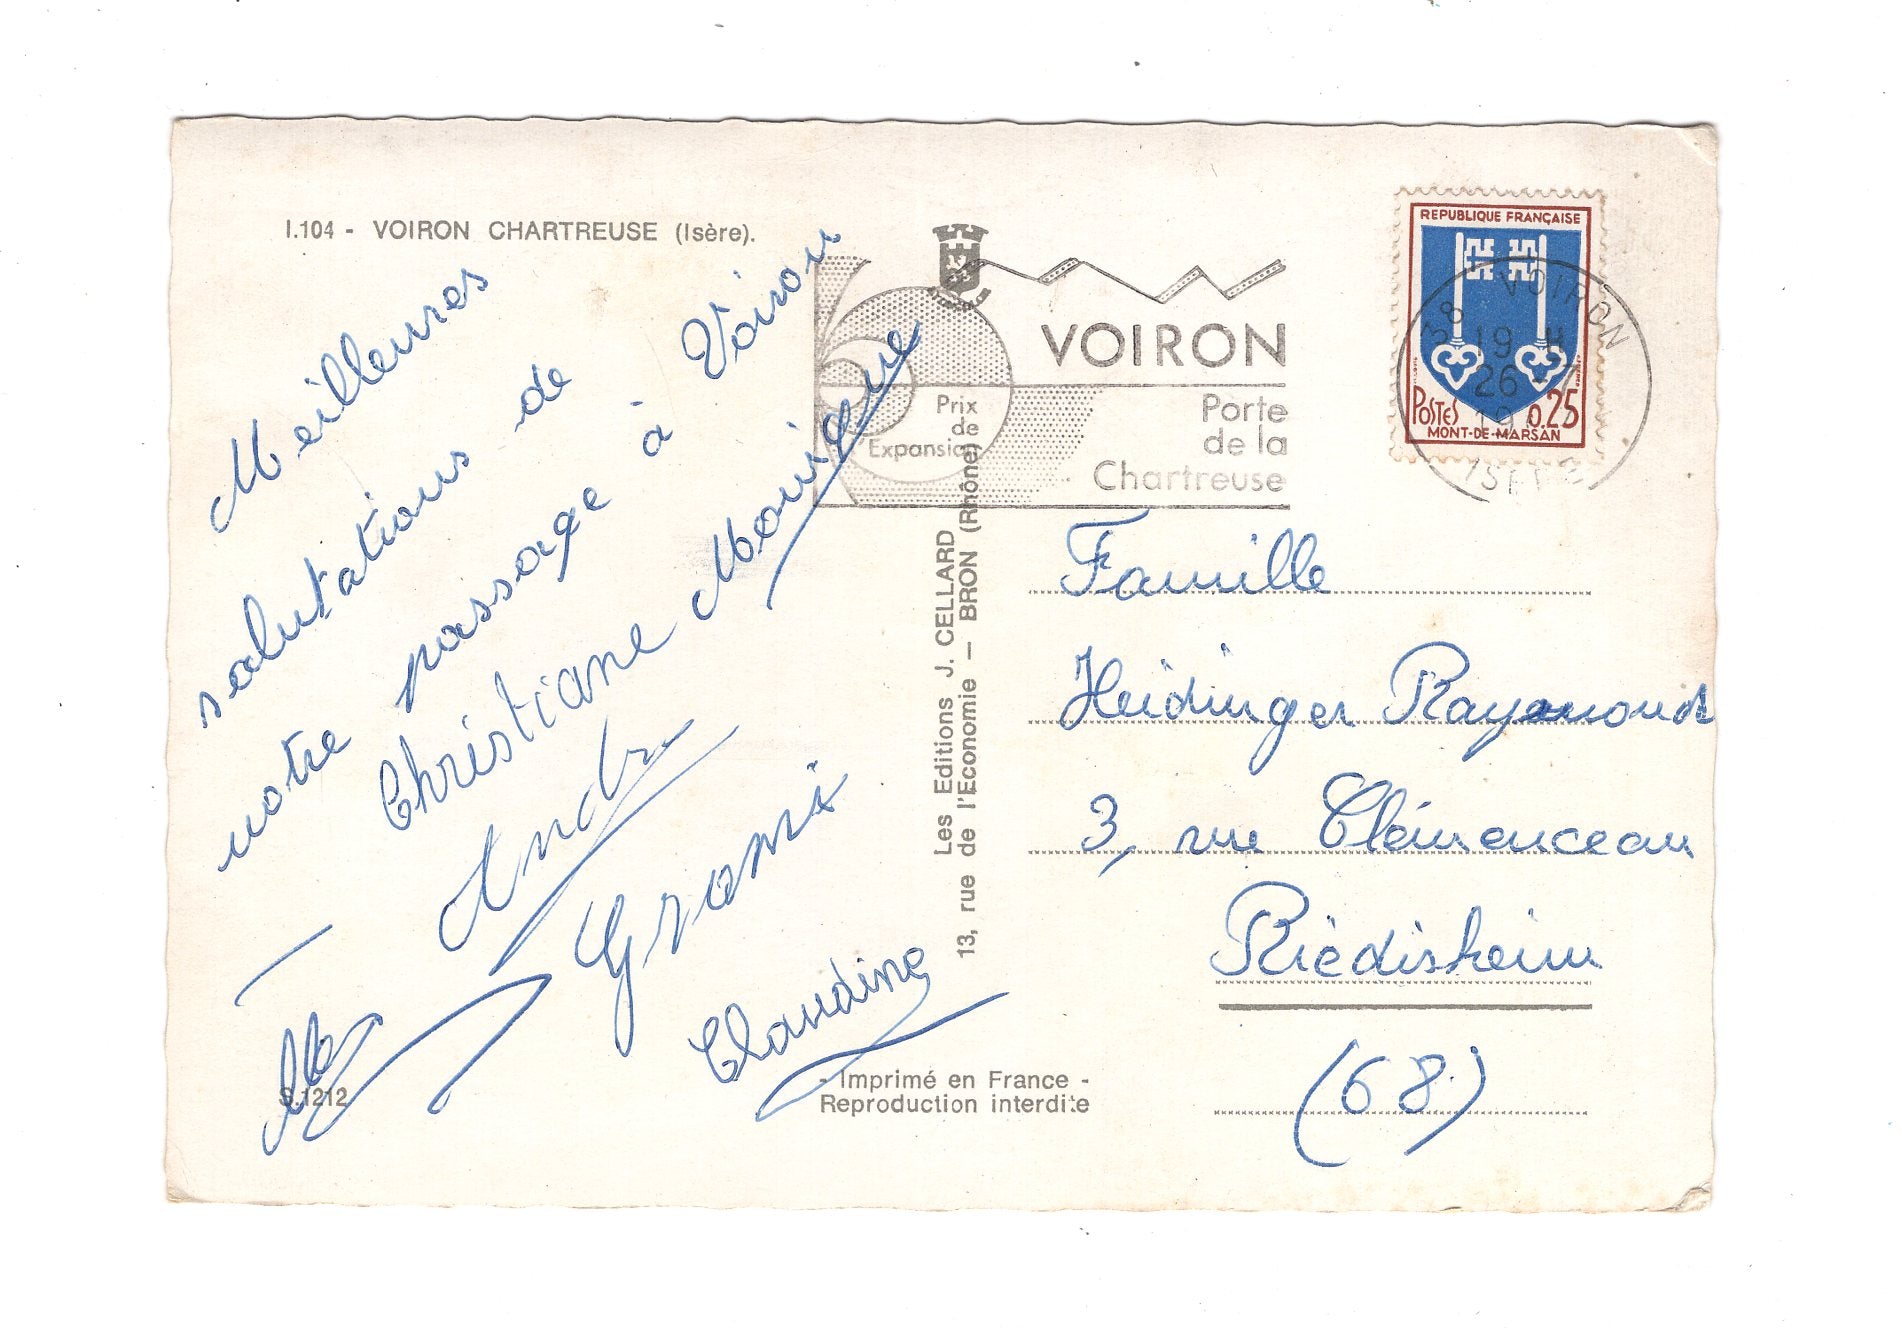 I.104 - VOIRON CHARTREUSE (Isère).
Meilleures
salutations de
notre passage à Voiron
Christiane Monique
André
Claudine
S.1212
Les Editions J. CELLARD
13, rue de l'Economie — BRON (Rhône)
- Imprimé en France -
Reproduction interdite
VOIRON
Porte
de la
Chartreuse
Prix
de
Expansion
REPUBLIQUE FRANÇAISE
POSTES 0,25
MONT-DE-MARSAN
38 VOIRON
19 H
26 - 7
19
ISERE
Famille
Heidinger Raymond
3, rue Clémenceau
Riedisheim
(68)